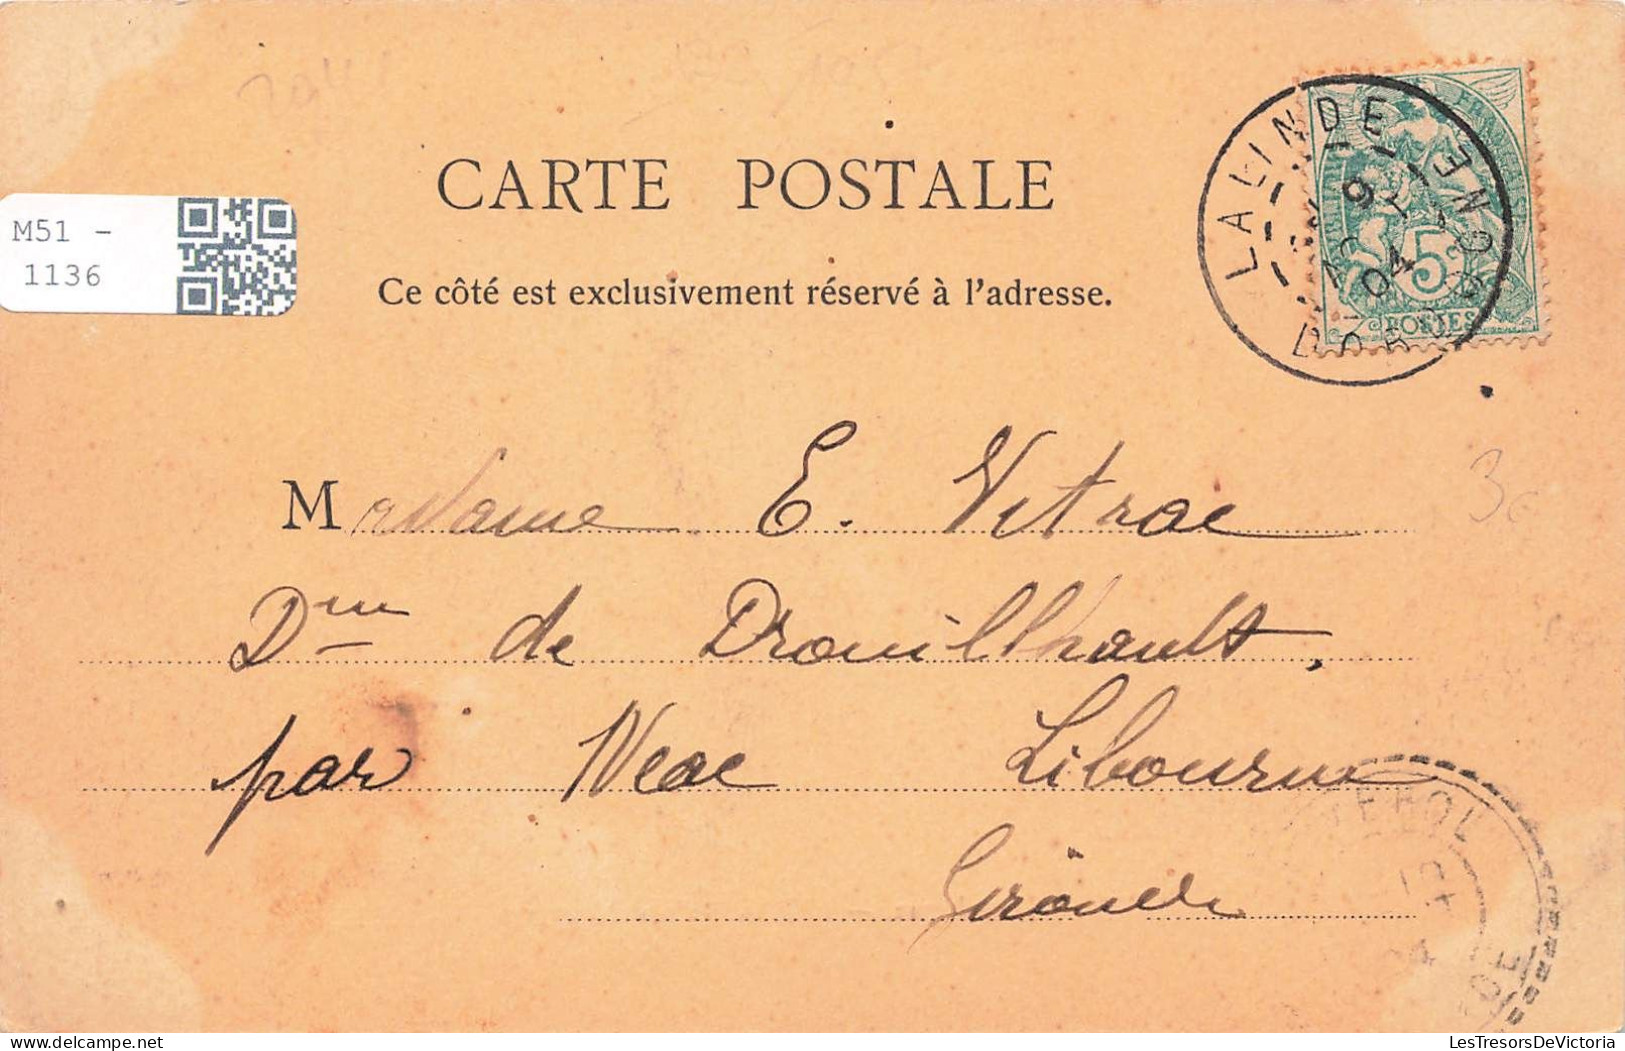 CARTE POSTALE
M51 -
1136
Ce côté est exclusivement réservé à l'adresse.
LALINDE
9
04
DORDOGNE
5
POSTES
Madame E. Vitrac
Dne de Drouilhault,
par Néac Libourne
Gironde
3€
LesTresorsDeVictoria